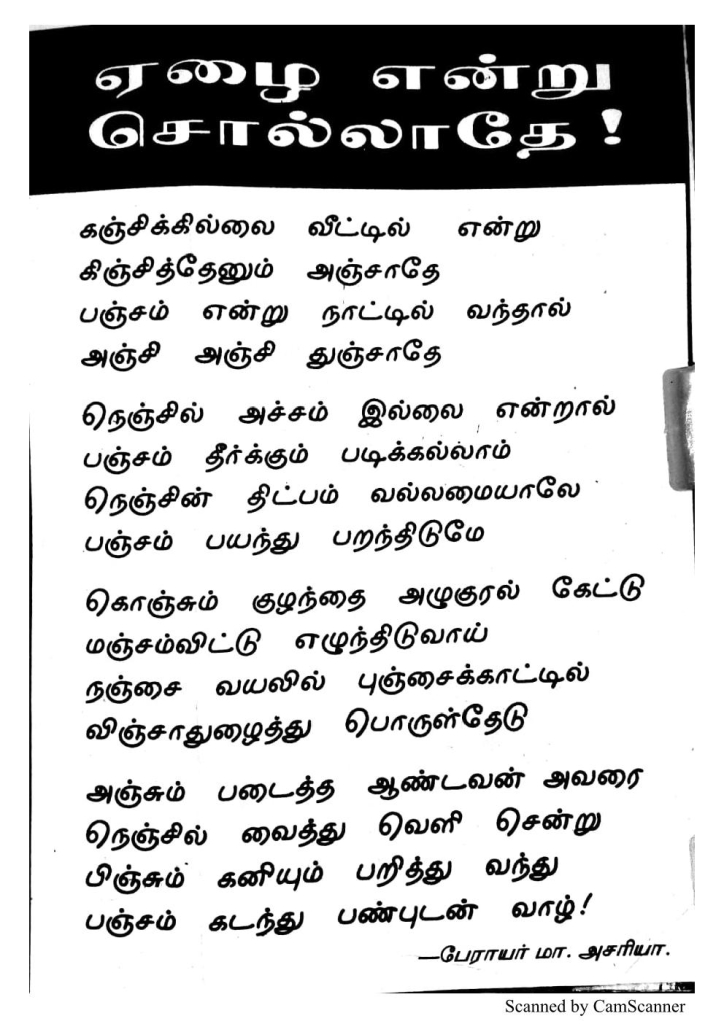 ஏழை என்று
சொல்லாதே!
கஞ்சிக்கில்லை வீட்டில் என்று
கிஞ்சித்தேனும் அஞ்சாதே
பஞ்சம் என்று நாட்டில் வந்தால்
அஞ்சி அஞ்சி துஞ்சாதே
நெஞ்சில் அச்சம் இல்லை என்றால்
பஞ்சம் தீர்க்கும் படிக்கல்லாம்
நெஞ்சின் திட்பம் வல்லமையாலே
பஞ்சம் பயந்து பறந்திடுமே
கொஞ்சும் குழந்தை அழுகுரல் கேட்டு
மஞ்சம்விட்டு எழுந்திடுவாய்
நஞ்சை வயலில் புஞ்சைக்காட்டில்
விஞ்சாதுழைத்து பொருள்தேடு
அஞ்சும் படைத்த ஆண்டவன் அவரை
நெஞ்சில் வைத்து வெளி சென்று
பிஞ்சும் கனியும் பறித்து வந்து
பஞ்சம் கடந்து பண்புடன் வாழ்!
—பேராயர் மா. அசரியா.
Scanned by CamScanner